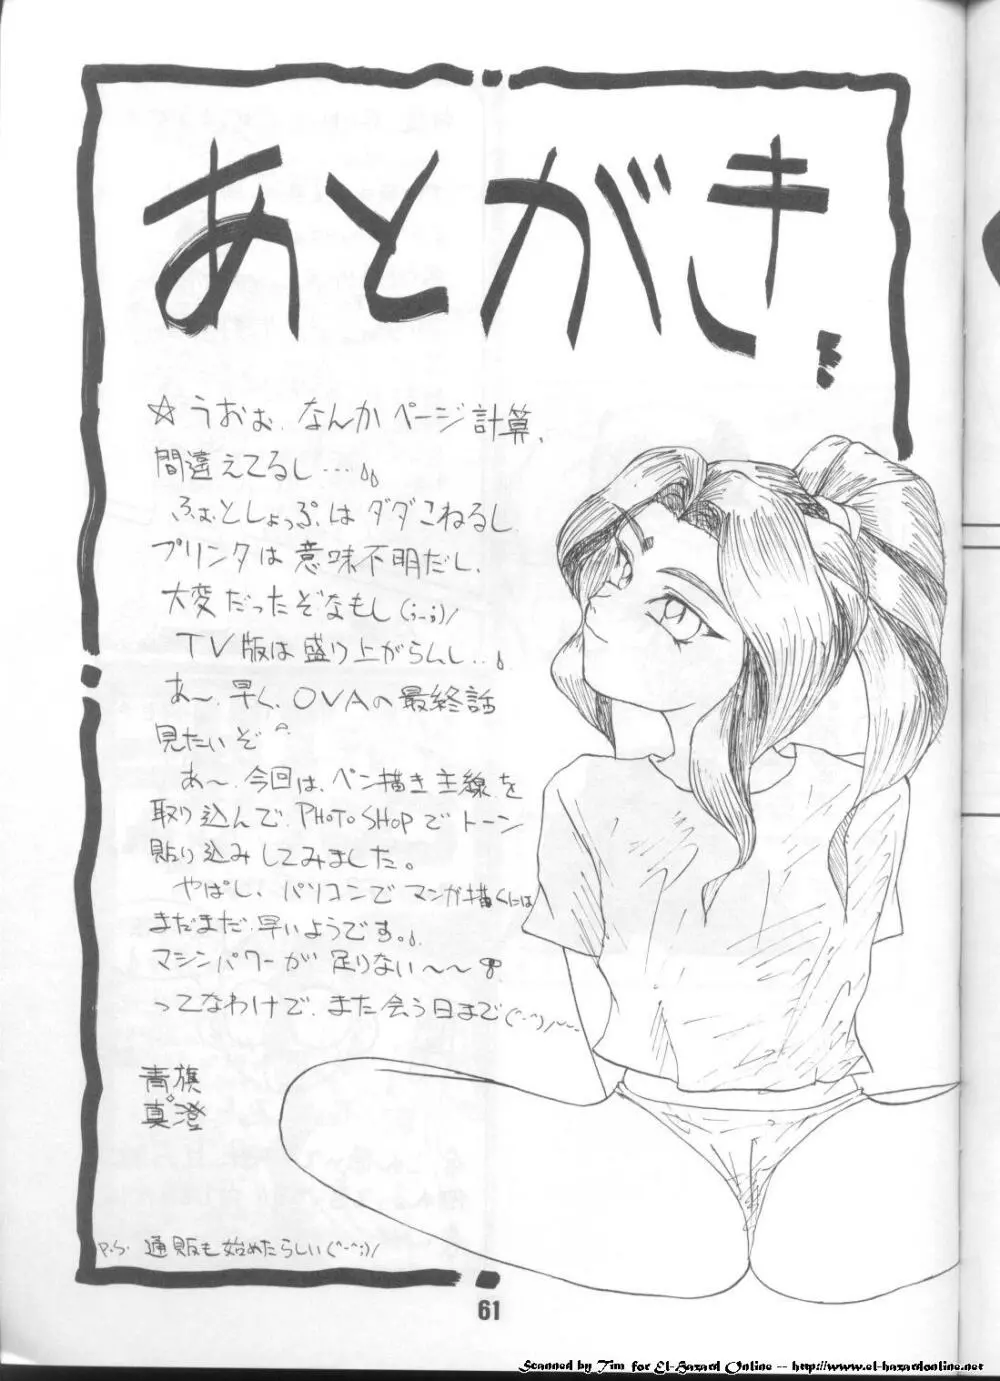 あとがき
☆うおぉ、なんかページ計算、
間違えてるし‥‥
ふぉとしょっぷはダダこねるし
プリンタは意味不明だし、
大変だったぞなもし(;-;)/
TV版は盛り上がらんし‥
あ〜、早く、OVAの最終話
見たいぞ
あ〜、今回は、ペン描き主線を
取り込んで、PHOTOSHOPでトーン
貼り込みしてみました。
やぱし、パソコンでマンガ描くには
まだまだ早いようです。
マシンパワーが足りない〜〜
ってなわけで、また会う日まで(^-^)/~~
青旗
真澄
P.S. 通販も始めたらしい(^-^;)/
61
Scanned by Tim for El-Hazard Online -- http://www.el-hazardonline.net